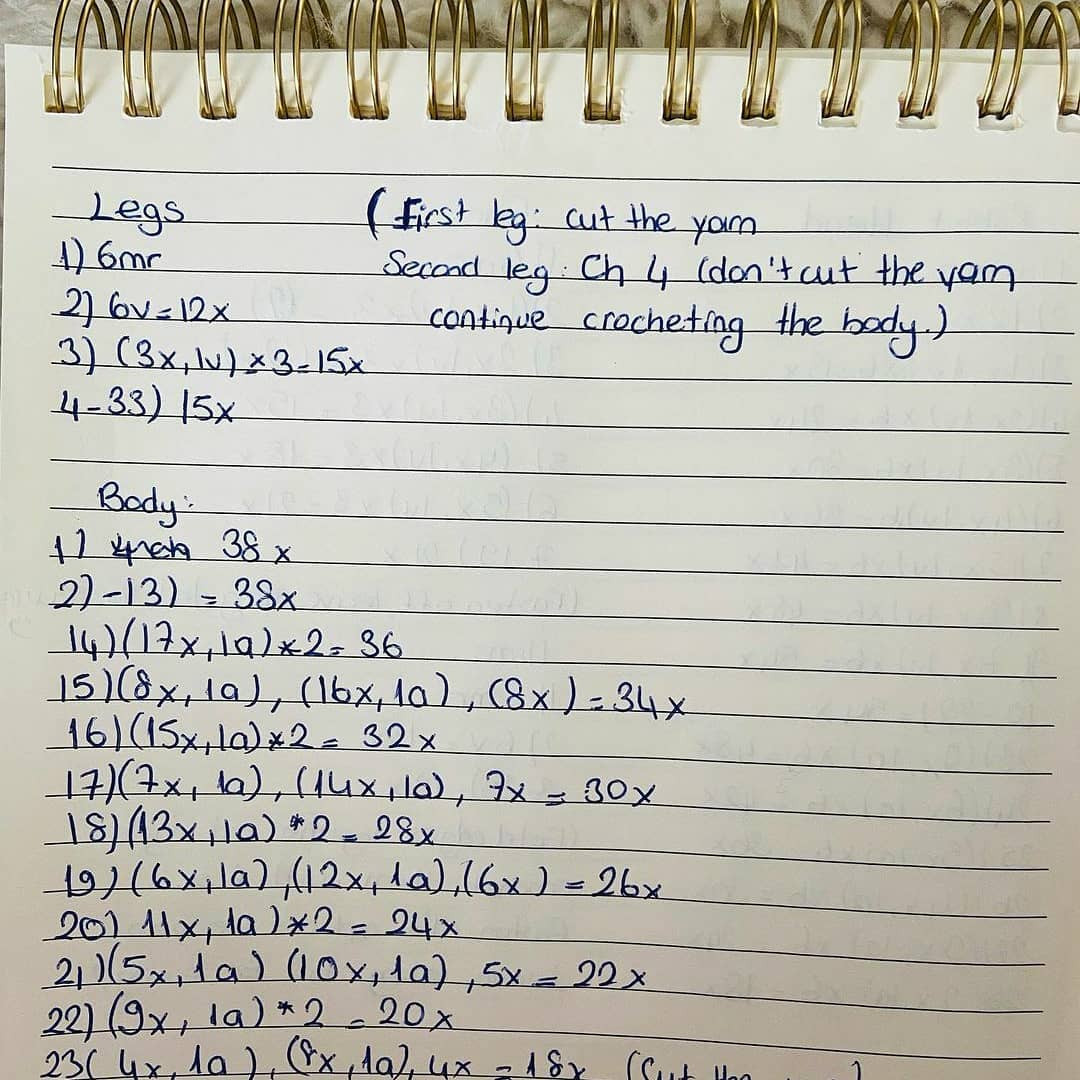 Legs (First leg: cut the yarn
1) 6mr Second leg: Ch 4 (don't cut the yarn
2) 6v=12x continue crocheting the body.)
3) (3x,1v)×3=15x
4-33) 15x
Body:
1) 38x
2)-13) = 38x
14)(17x,1a)*2= 36
15)(8x,1a), (16x,1a), (8x)=34x
16)(15x,1a)*2= 32x
17)(7x, 1a), (14x,1a), 7x = 30x
18)(13x,1a) *2= 28x
19)(6x,1a),(12x,1a),(6x) = 26x
20) 11x, 1a)*2 = 24x
21)(5x,1a) (10x,1a),5x = 22x
22)(9x, 1a) *2 = 20x
23( 4x,1a), (8x,1a), 4x = 18x (Cut the